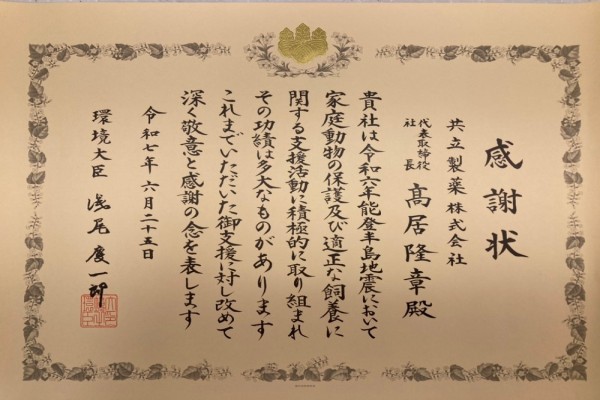 感謝状
共立製薬株式会社
代表取締役
社長
髙居隆章殿
貴社は令和六年能登半島地震において
家庭動物の保護及び適正な飼養に
関する支援活動に積極的に取り組まれ
その功績は多大なものがあります
これまでいただいた御支援に対し改めて
深く敬意と感謝の念を表します
令和七年六月二十五日
環境大臣 浅尾慶一郎